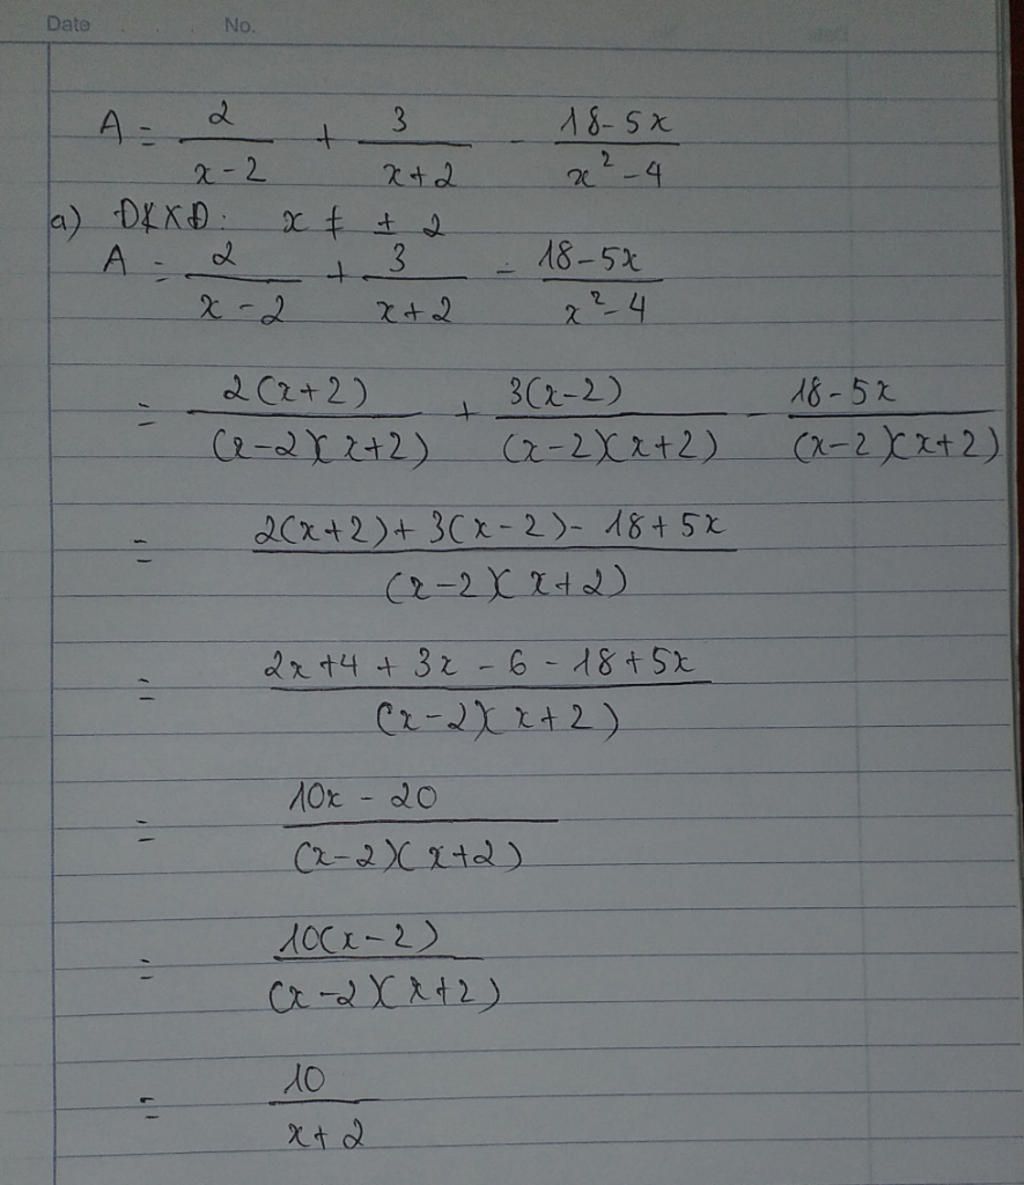 Date No.
A = 2/(x-2) + 3/(x+2) - (18-5x)/(x²-4)
a) ĐKXĐ: x ≠ ± 2
A = 2/(x-2) + 3/(x+2) - (18-5x)/(x²-4)
= 2(x+2)/((x-2)(x+2)) + 3(x-2)/((x-2)(x+2)) - (18-5x)/((x-2)(x+2))
= (2(x+2)+3(x-2)-18+5x)/((x-2)(x+2))
= (2x+4+3x-6-18+5x)/((x-2)(x+2))
= (10x-20)/((x-2)(x+2))
= 10(x-2)/((x-2)(x+2))
= 10/(x+2)